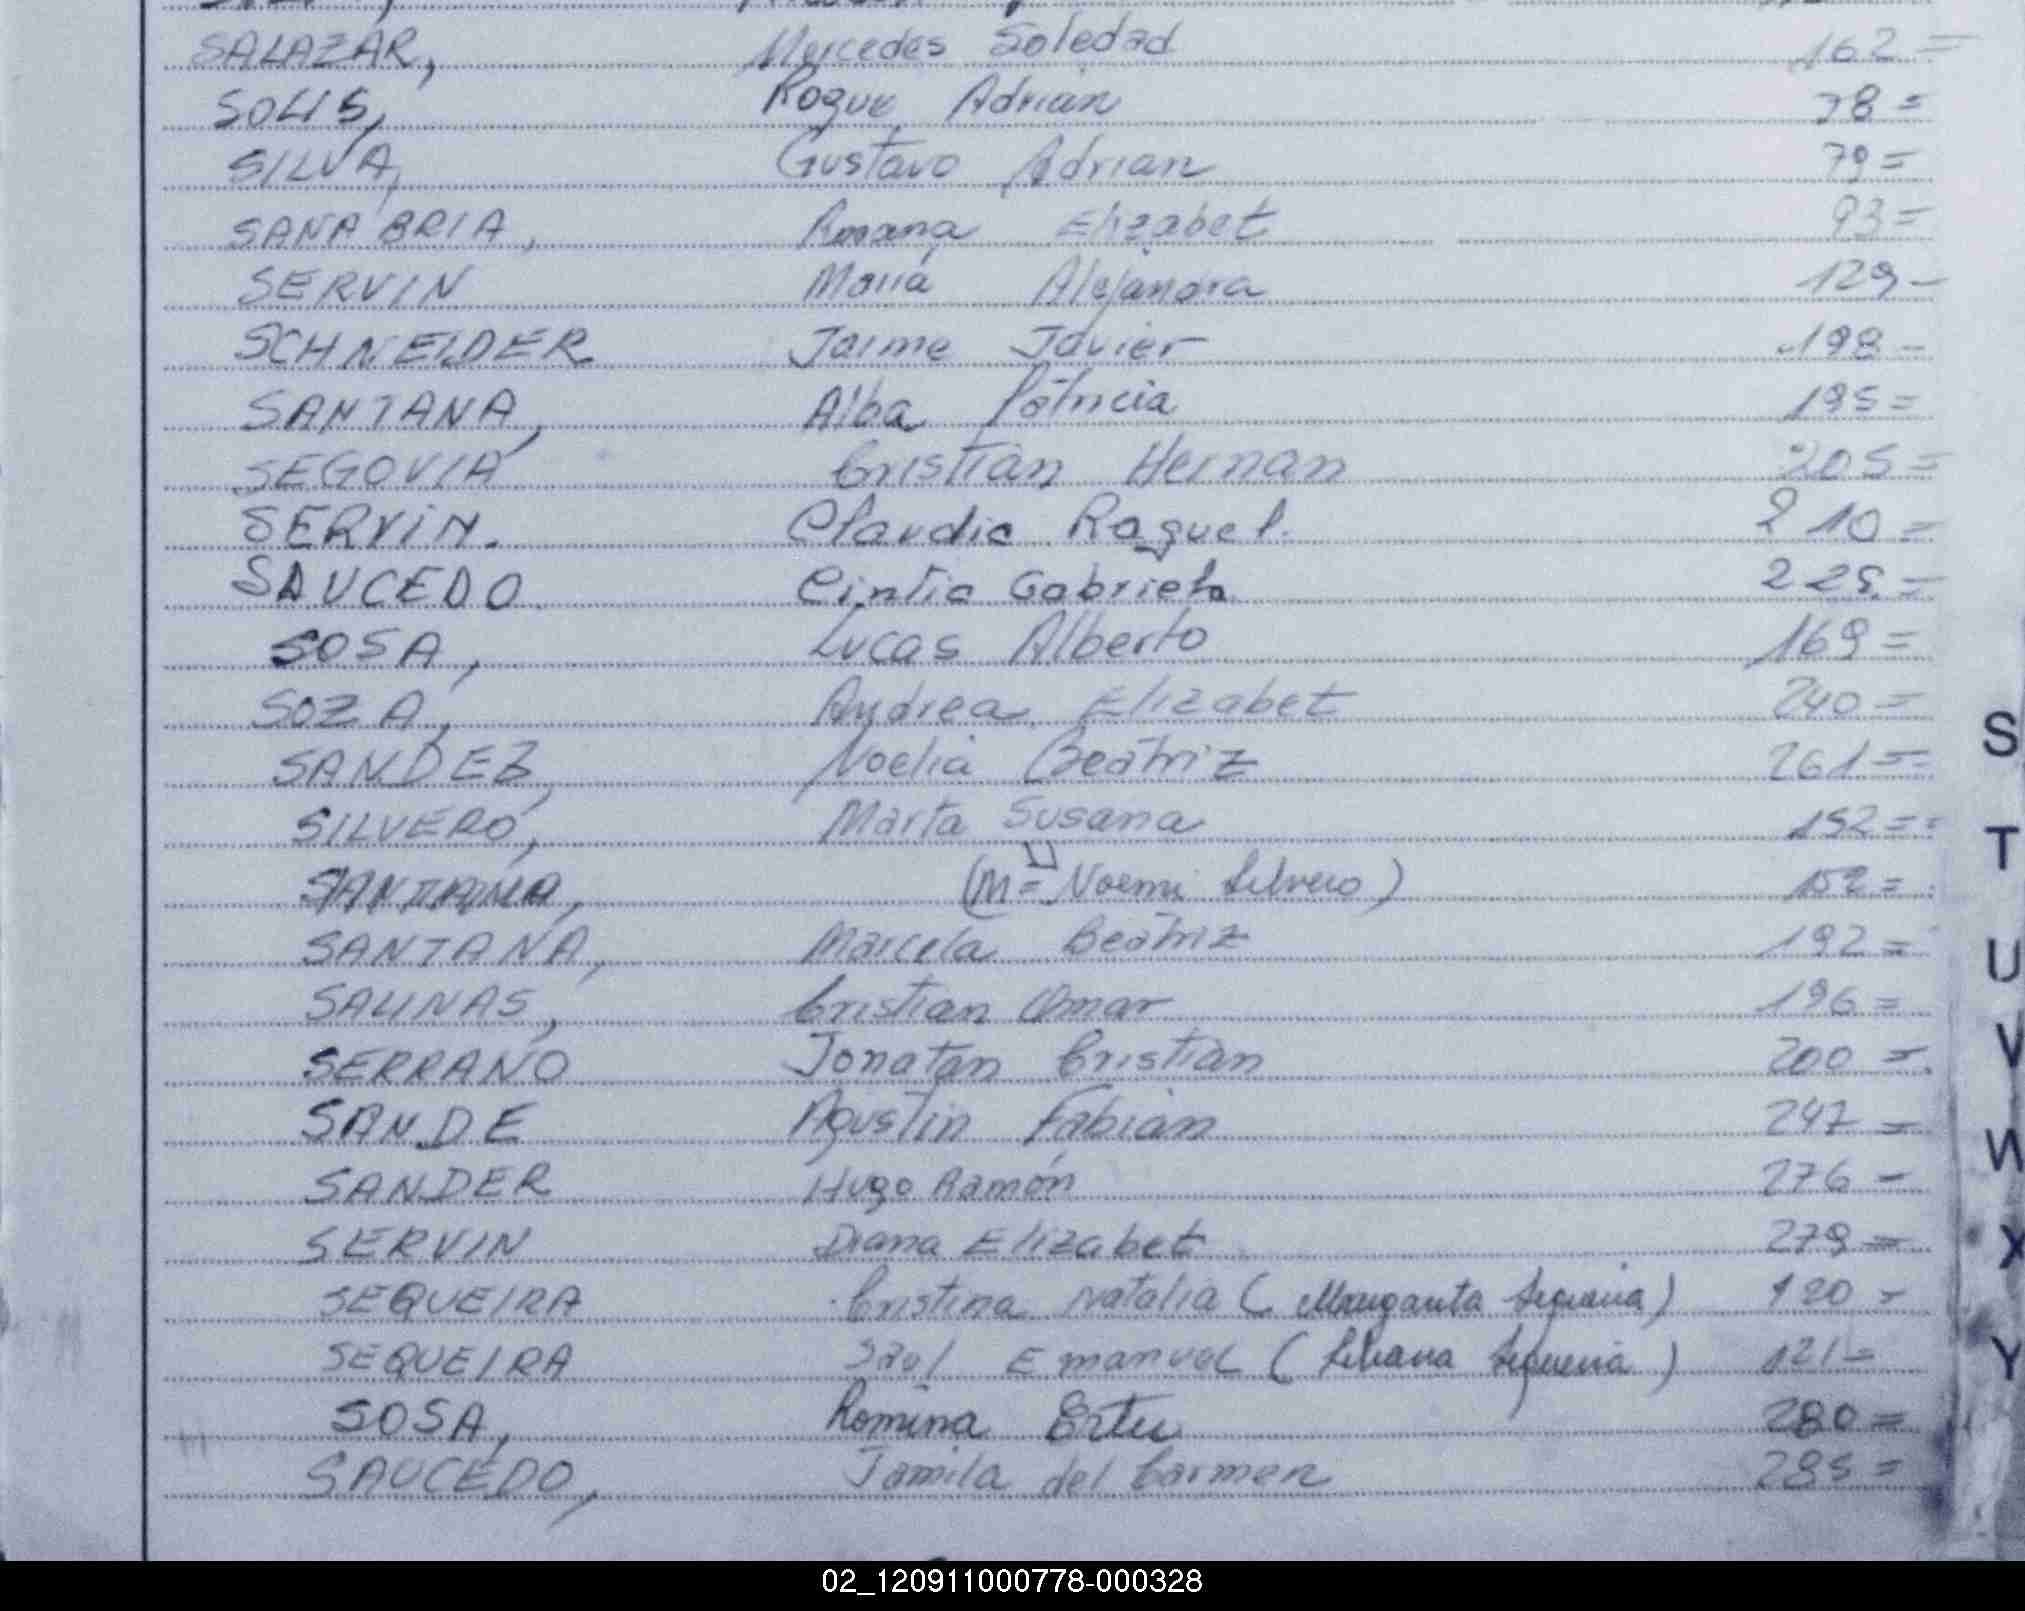 SALAZAR, Mercedes Soledad 162=
SOLIS, Roque Adrian 78=
SILVA, Gustavo Adrian 79=
SANABRIA, Rosana Elizabet 93=
SERVIN María Alejandra 129-
SCHNEIDER Jaime Javier 198-
SANTANA, Alba Patricia 195=
SEGOVIA Cristian Hernan 205=
SERVIN. Claudia Raquel. 210=
SAUCEDO Cintia Gabriela
SOSA, Lucas Alberto 169=
SOZA, Andrea Elizabet 240=
SANDEZ, Noelia Beatriz 261=
SILVERO, Marta Susana 152=
SANTANA, (M= Noemi Silvero) 152=
SANTANA, Marcela Beatriz 192=
SALINAS, Cristian Omar 196=
SERRANO Jonatan Cristian 200=
SANDE Agustin Fabian 247=
SANDER Hugo Ramón 276-
SERVIN Diana Elizabet 279=
SEQUEIRA Cristina Natalia (Margarita Sequeira) 120=
SEQUEIRA Saol Emanuel (Liliana Sequeira) 121=
SOSA, Romina Ester 280=
SAUCEDO, Jamila del Carmen 285=
S
T
U
V
W
X
Y
02_120911000778-000328